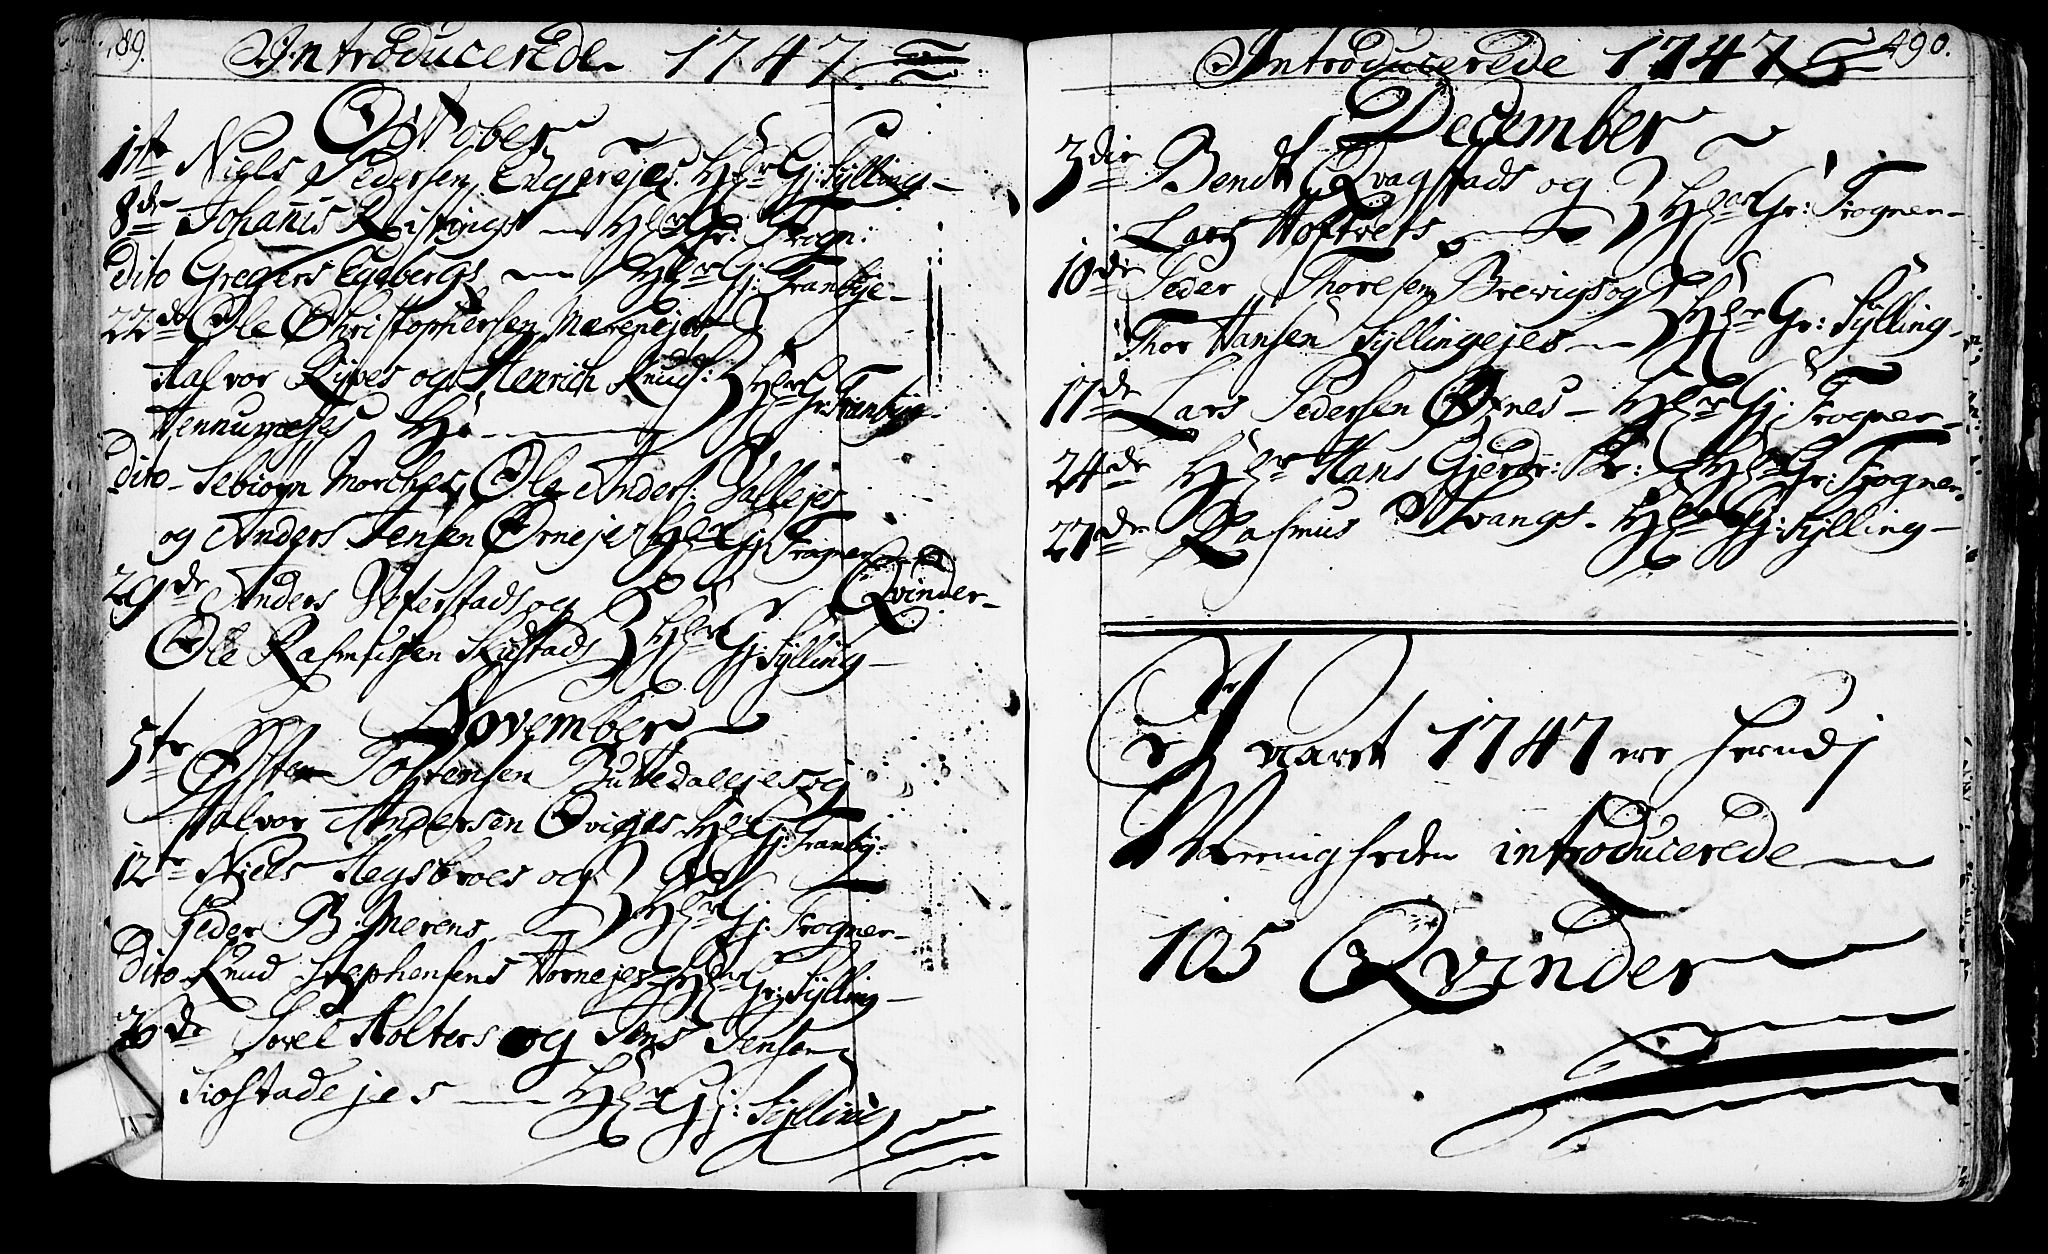 489. Introducerede 1747.
October
1ste Niels Pedersen Engerejes. Hr Gj: Sylling
8de Johañis Kistings Hr Gr: Frogn:
Dito Gregers Egebergs Hr Gj: Tranbye
22de Ole Christophersen Merenejes
Halvor Rijpes og Henrich Knuds: Hr Gr: Tranbye
Hennumejes
Dito Sebiørn Morches, Ole Anders: Vallejes
og Anders Jensen Ørnejes Hr Gj: Frogner
29de Anders Ofverstads og Qvinder
Ole Rasmussen Skustads Hr Gj: Sylling
November
5te Østen Tostensen Buttedalejes og
Halvor Andersen Øviejes Hr Gj: Tranby:
12te Niels Hegsbroes og
Peder B: Merens Hr Gj: Frogner
Dito Knud Stephensens Hornejes Hr Gr: Sylling
26de Povel Holters og Jens Jensen
Siøstadejes Hr Gj: Sylling
Introducerede 1747 490.
December
3die Bendt Qvagstads og
Lars Toftvets Hr Gr: Frogner
10de Peder Thoresen Brevigs og
Thor Hansen Syllingejes Hr Gr: Sylling
17de Lars Pedersen Ørnes Hr Gj: Frogner
24de Hr Hans Gjerdr: Hr Gr: Frogner
27de Rasmus Ulvangs Hr Gj: Sylling
I Aaret 1747 ere herudj
Meenigheden introducerede
105 Qvinder